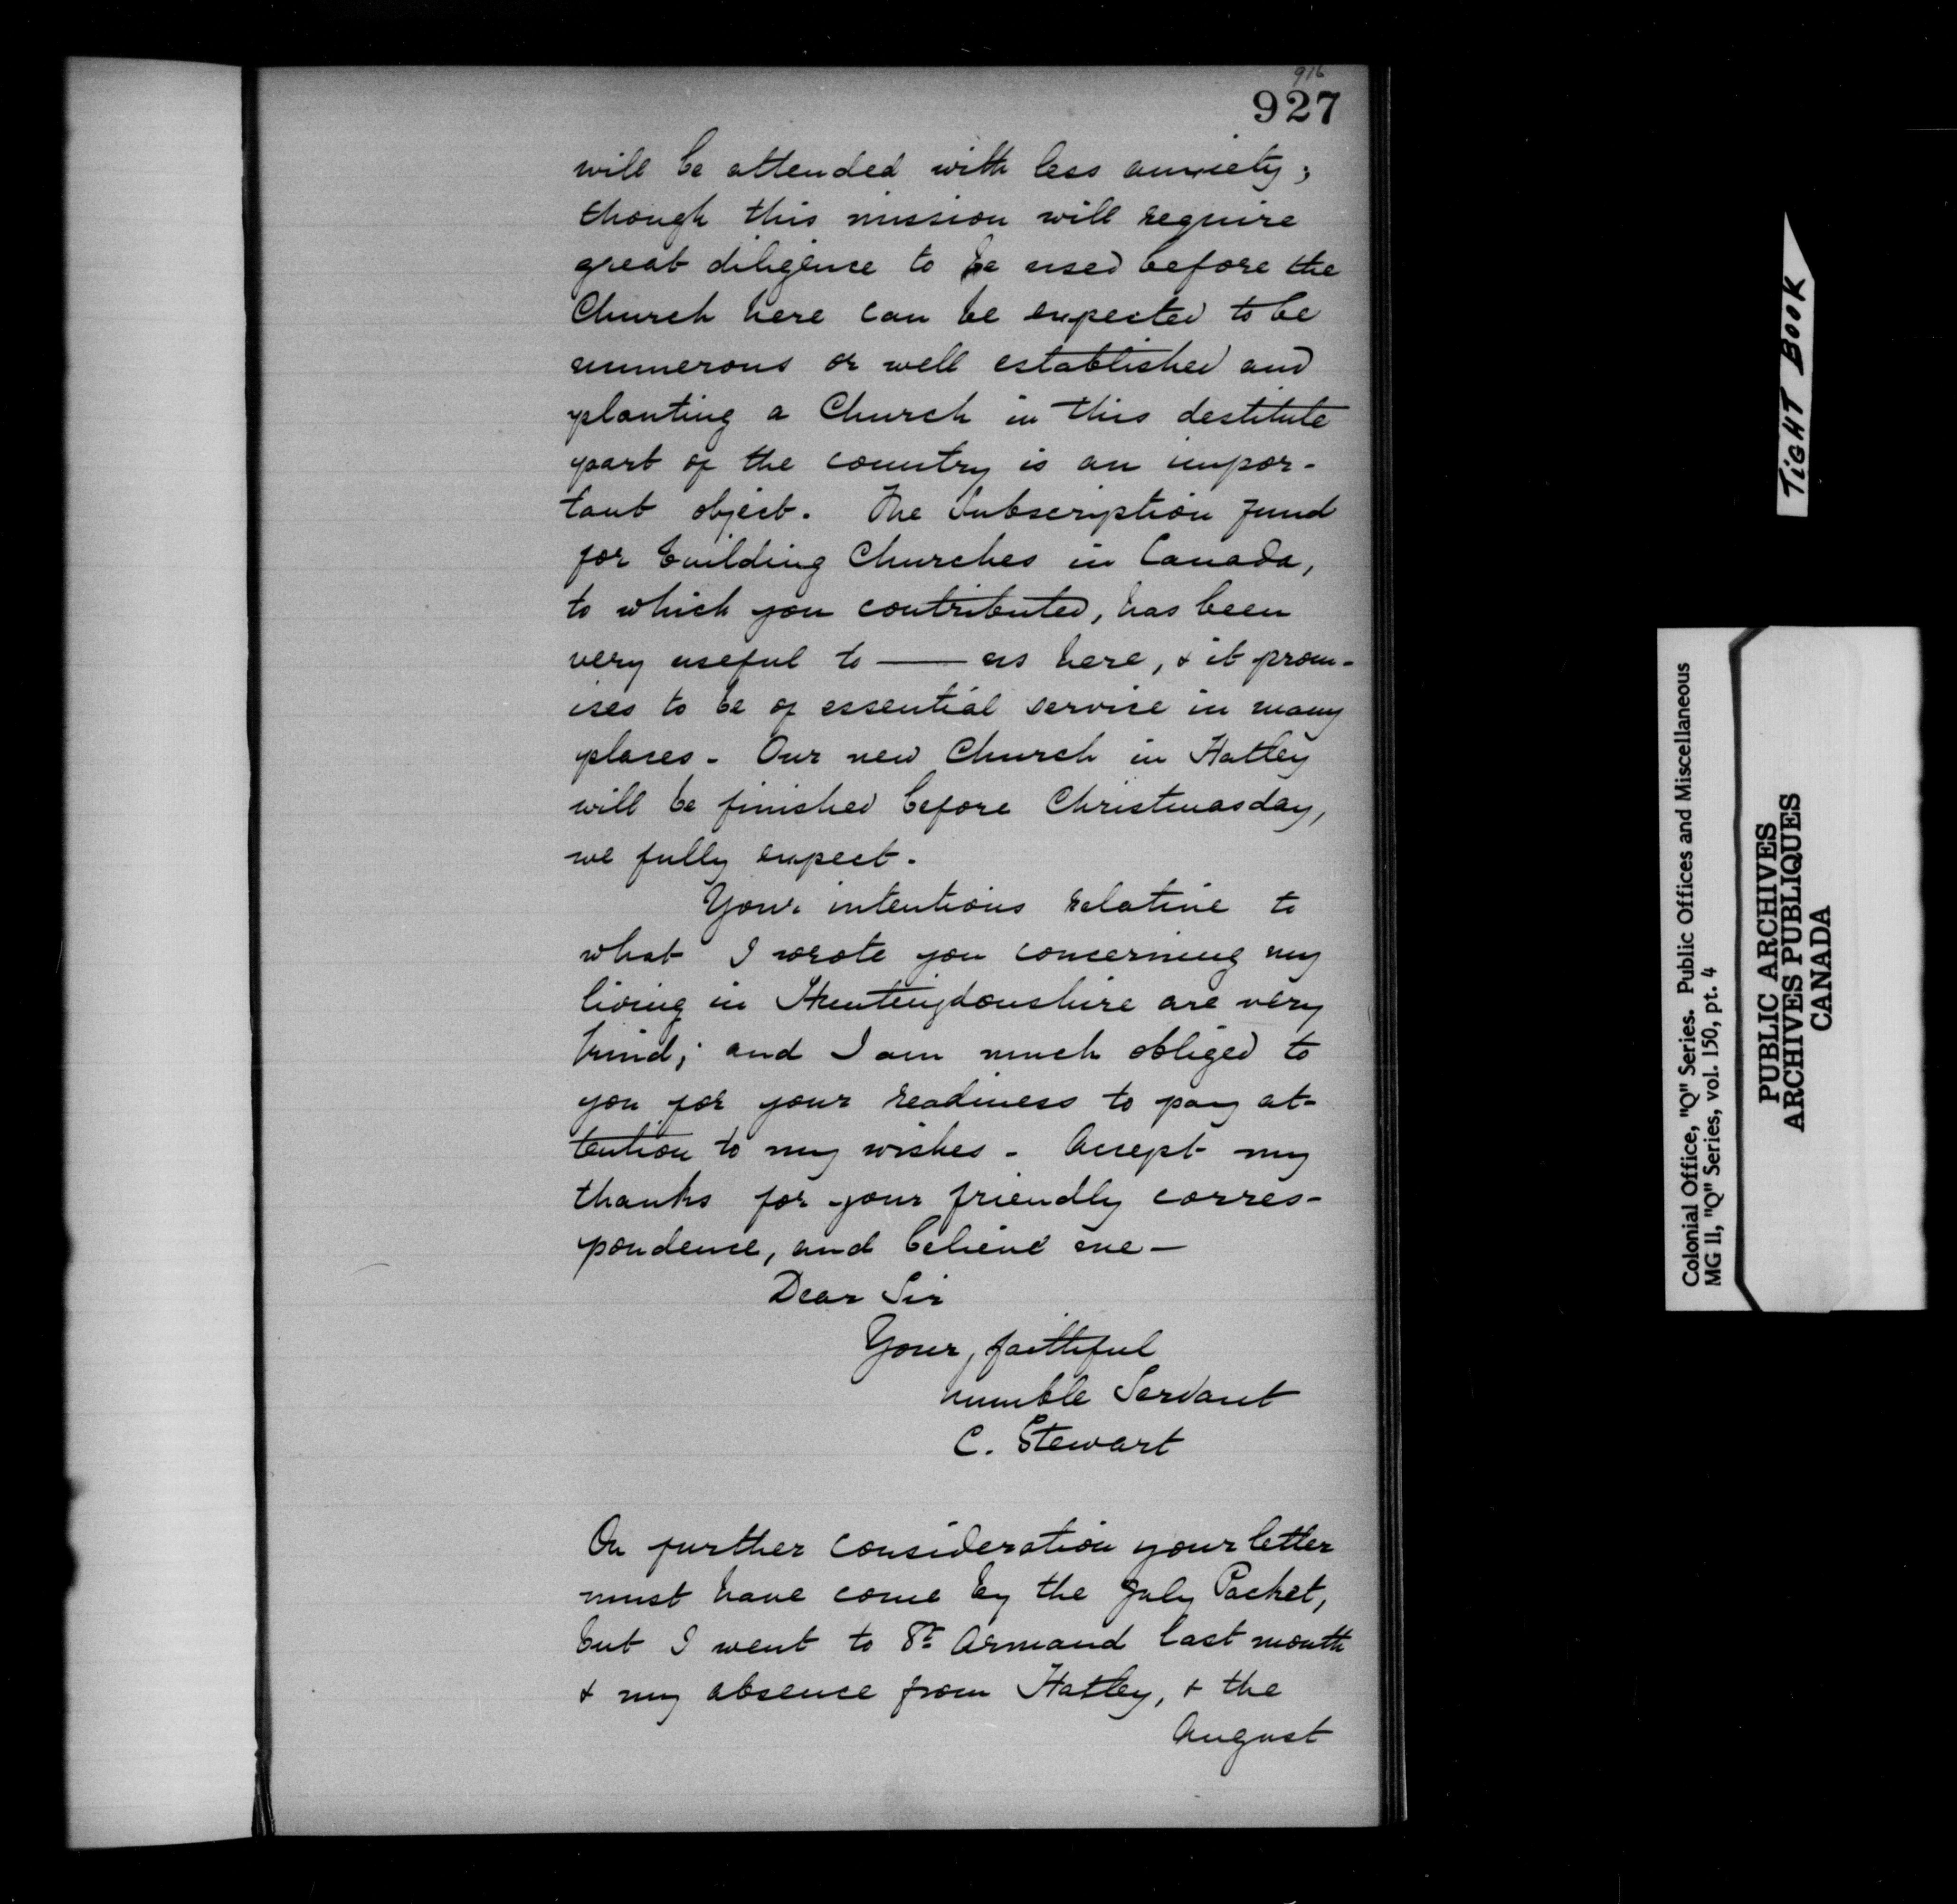 916
927
will be attended with less anxiety;
though this mission will require
great diligence to be used before the
Church here can be expected to be
numerous or well established and
planting a Church in this destitute
part of the country is an impor-
tant object. The Subscription Fund
for building Churches in Canada,
to which you contributed, has been
very useful to —— us here, & it prom-
ises to be of essential service in many
places - Our new Church in Hatley
will be finished before Christmasday,
we fully expect.
Your intentions relative to
what I wrote you concerning my
living in Huntingdonshire are very
kind; and I am much obliged to
you for your readiness to pay at-
tention to my wishes - Accept my
thanks for your friendly corres-
pondence, and believe me -
Dear Sir
Your, faithful
humble Servant
C. Stewart
On further consideration your letter
must have come by the July Packet,
but I went to St Armand last month
& my absence from Hatley, & the
August
TIGHT BOOK
Colonial Office, "Q" Series. Public Offices and Miscellaneous
MG 11, "Q" Series, vol. 150, pt. 4
PUBLIC ARCHIVES
ARCHIVES PUBLIQUES
CANADA